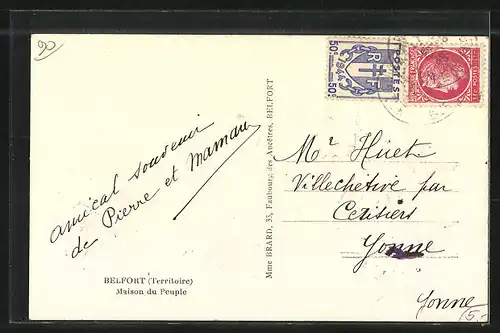 90
50c 50c
RF
1944
POSTES
amical souvenir
de Pierre et Maman
BELFORT (Territoire)
Maison du Peuple
Mme BRARD, 33, Faubourg des Ancêtres, BELFORT
Mr Huet
Villechétive par
Cerisiers
Yonne
Yonne
5.-